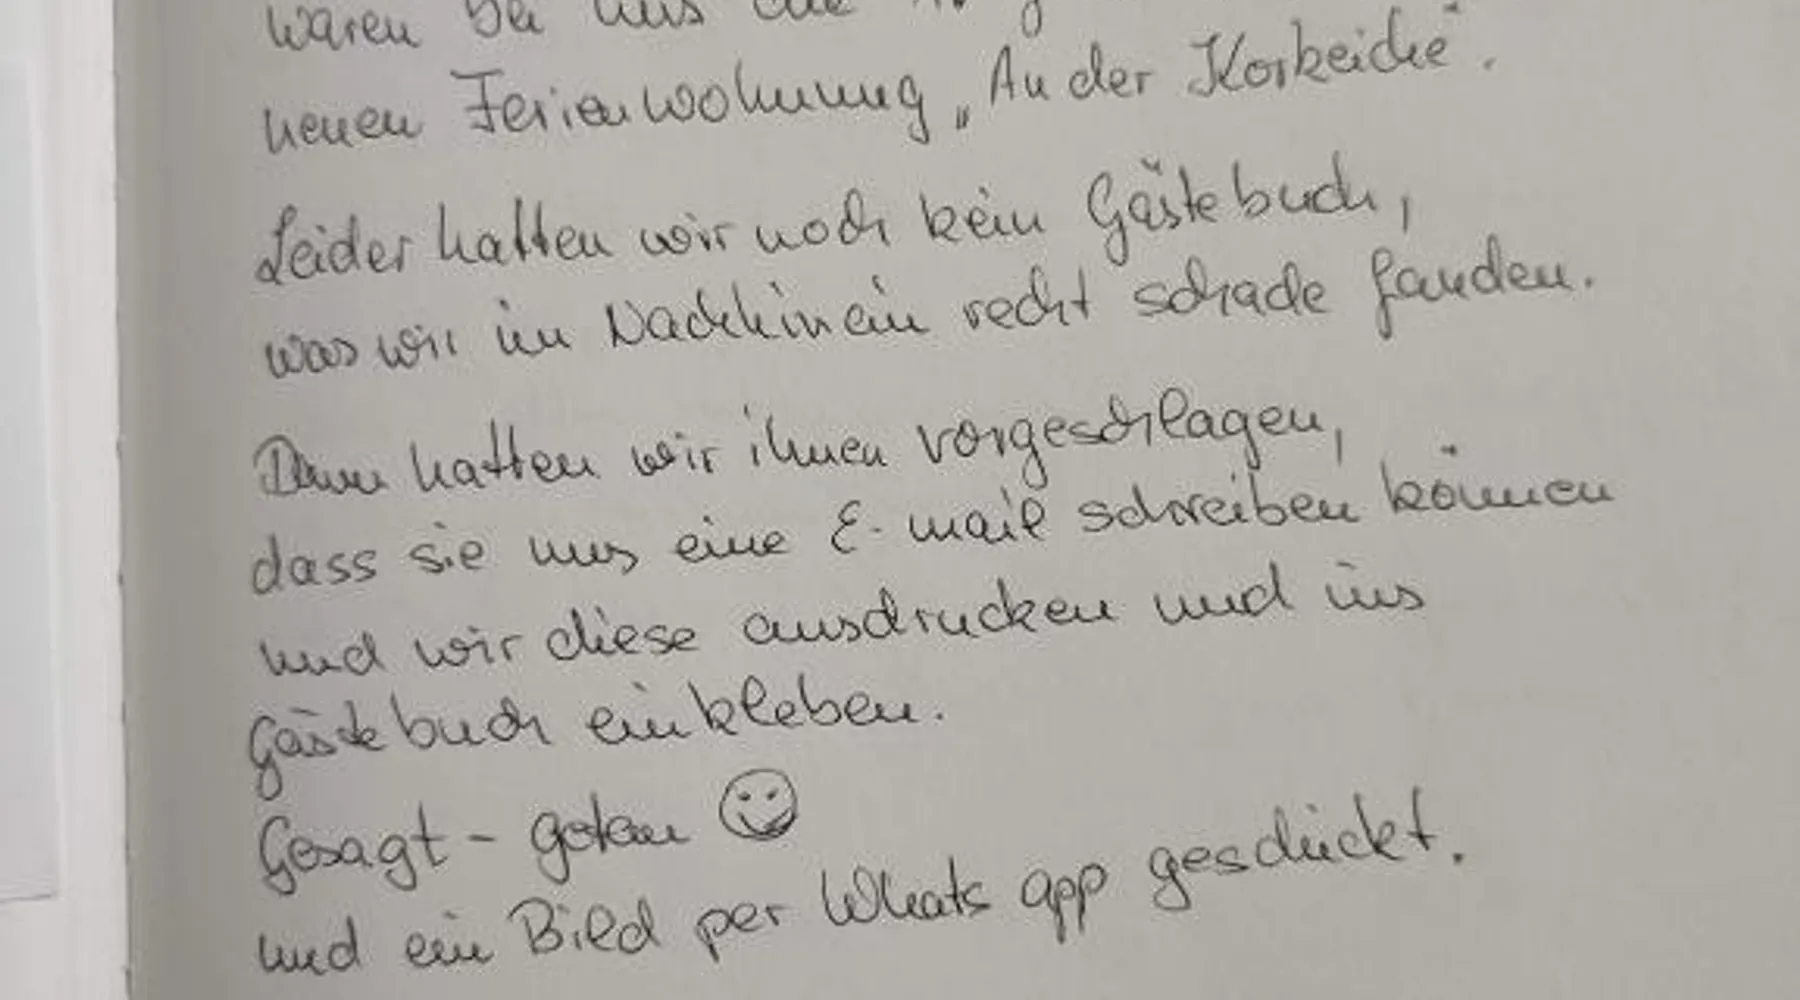 waren bei uns die
neuen Ferienwohnung „An der Korkeiche".
Leider hatten wir noch kein Gästebuch,
was wir im Nachhinein recht schade fanden.
Dann hatten wir ihnen vorgeschlagen,
dass sie uns eine E-mail schreiben können
und wir diese ausdrucken und ins
Gästebuch einkleben.
Gesagt - getan ☺
und ein Bild per Whats app geschickt.